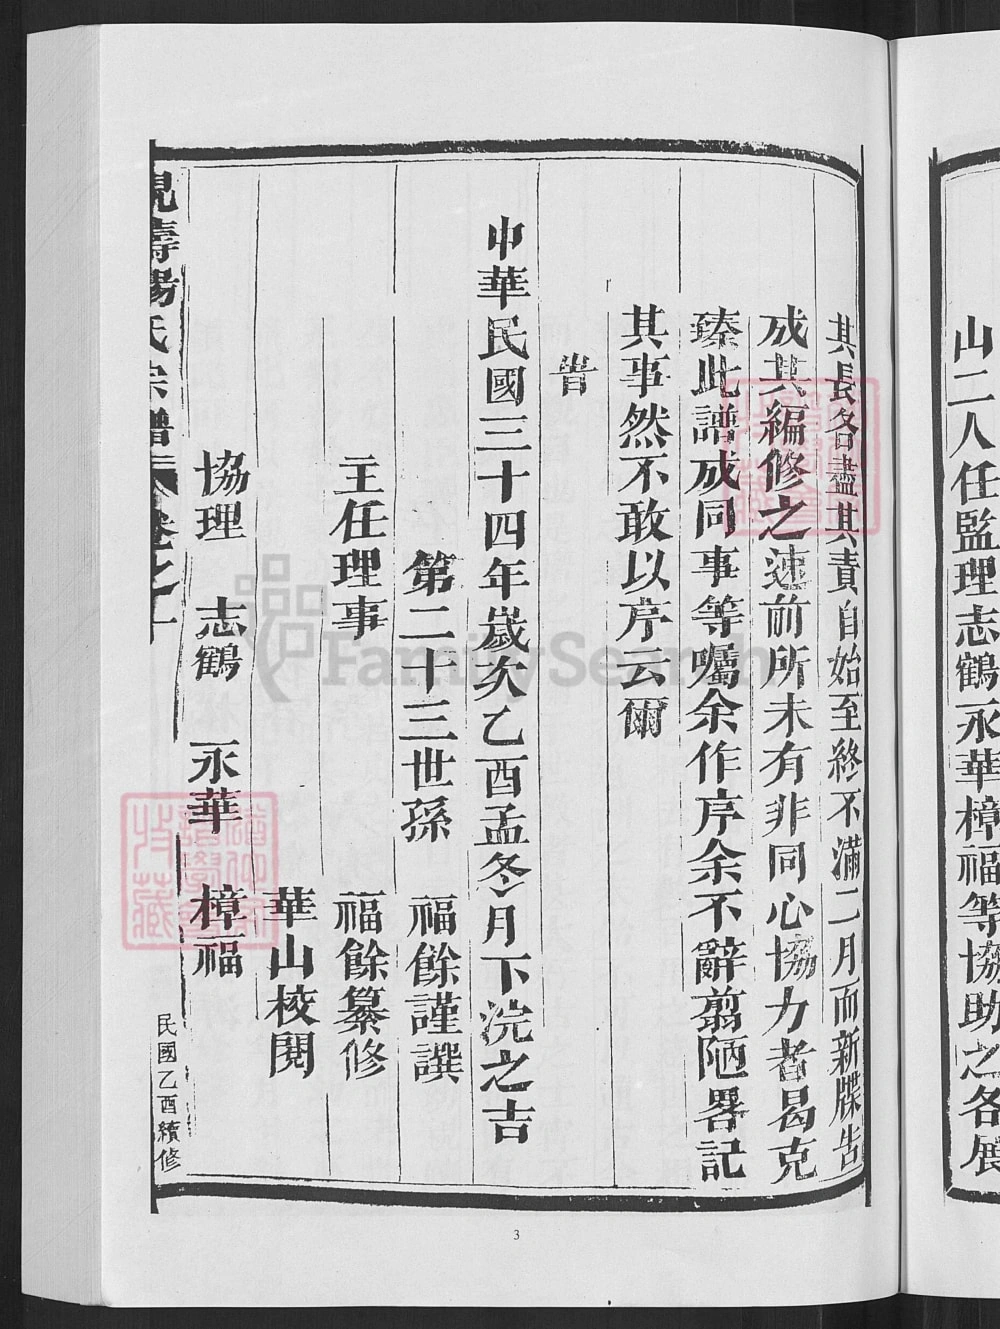 山二人任監理志鶴永華樟福等協助之各展
其長各盡其責自始至終不滿二月而新牒告
成其編修之速前所未有非同心協力者曷克
臻此譜成同事等囑余作序余不辭翦陋畧記
其事然不敢以序云爾
旹
中華民國三十四年歲次乙酉孟冬月下浣之吉
第二十三世孫 福餘謹譔
主任理事 福餘纂修
華山校閱
協理 志鶴 永華 樟福
壽楊氏宗譜 卷之一 民國乙酉續修
3
FamilySearch